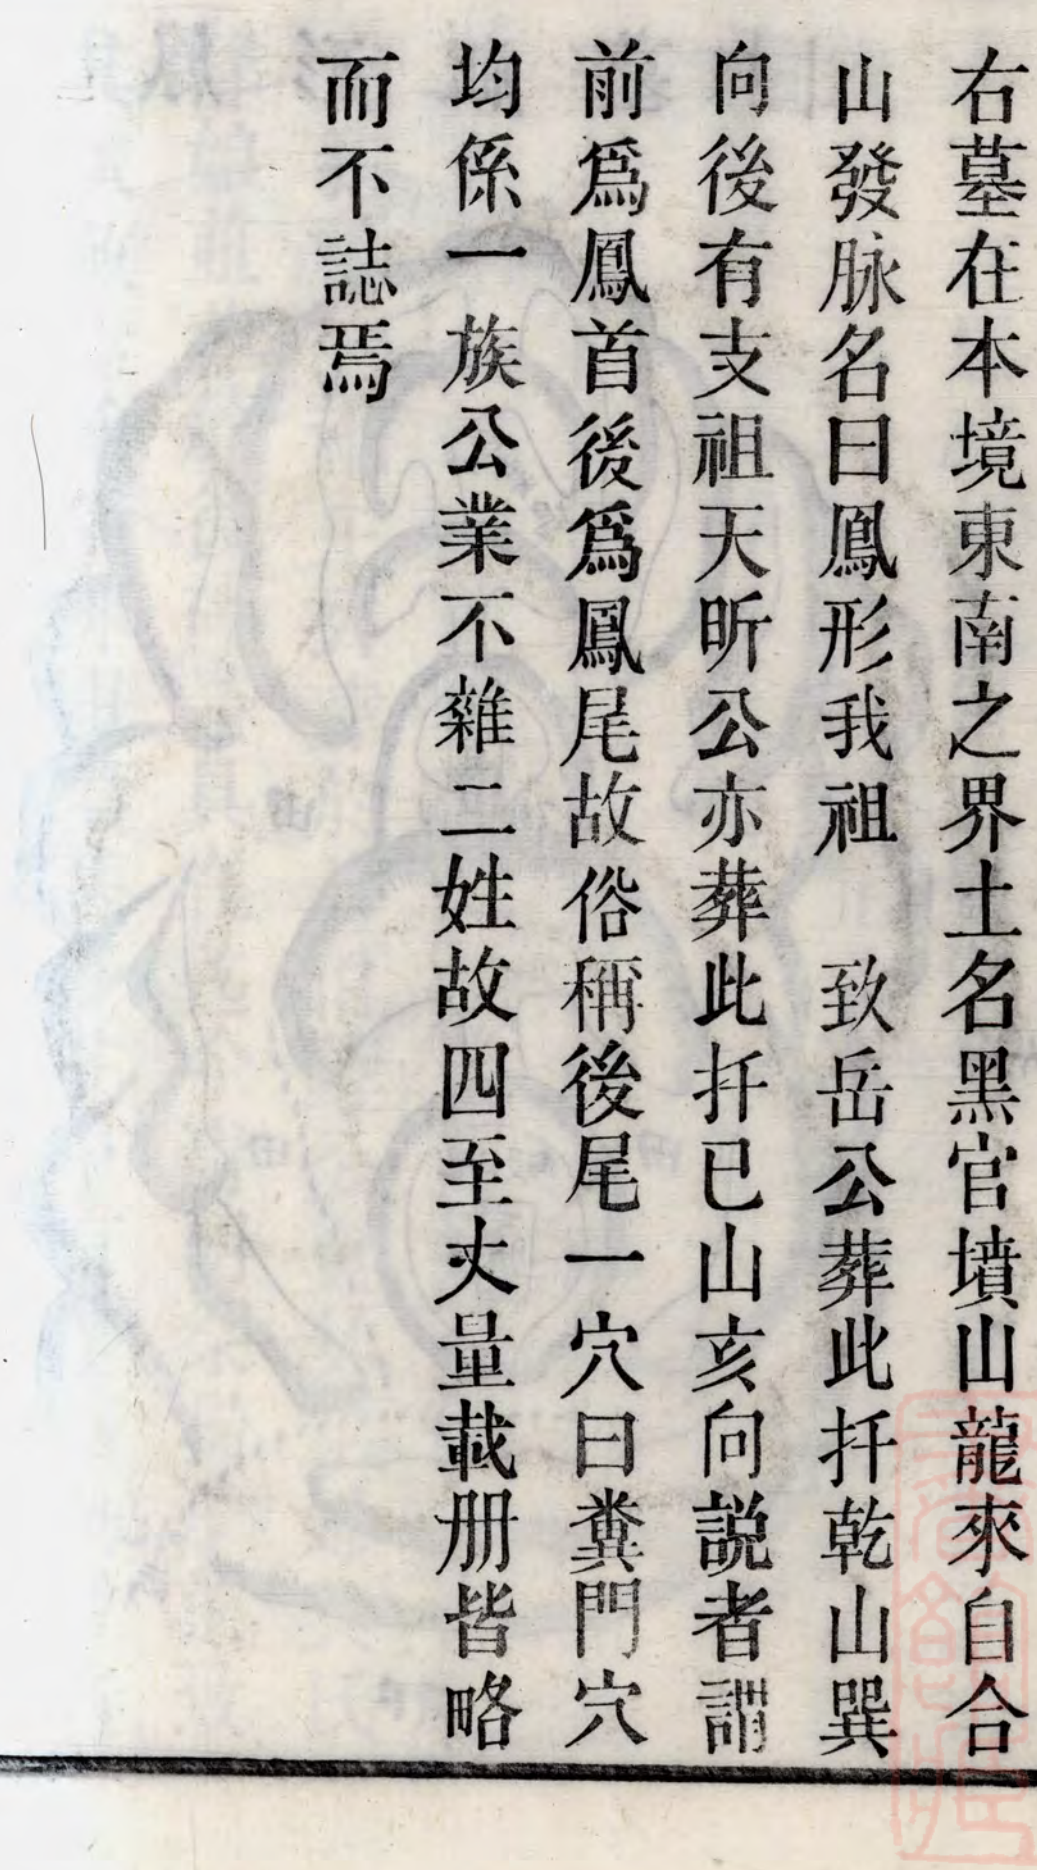 右墓在本境東南之界土名黑官墳山龍來自合
山發脉名曰鳳形我祖　致岳公葬此扦乾山巽
向後有支祖天昕公亦葬此扦巳山亥向説者謂
前爲鳳首後爲鳳尾故俗稱後尾一穴曰糞門穴
均係一族公業不雜二姓故四至丈量載册皆略
而不誌焉